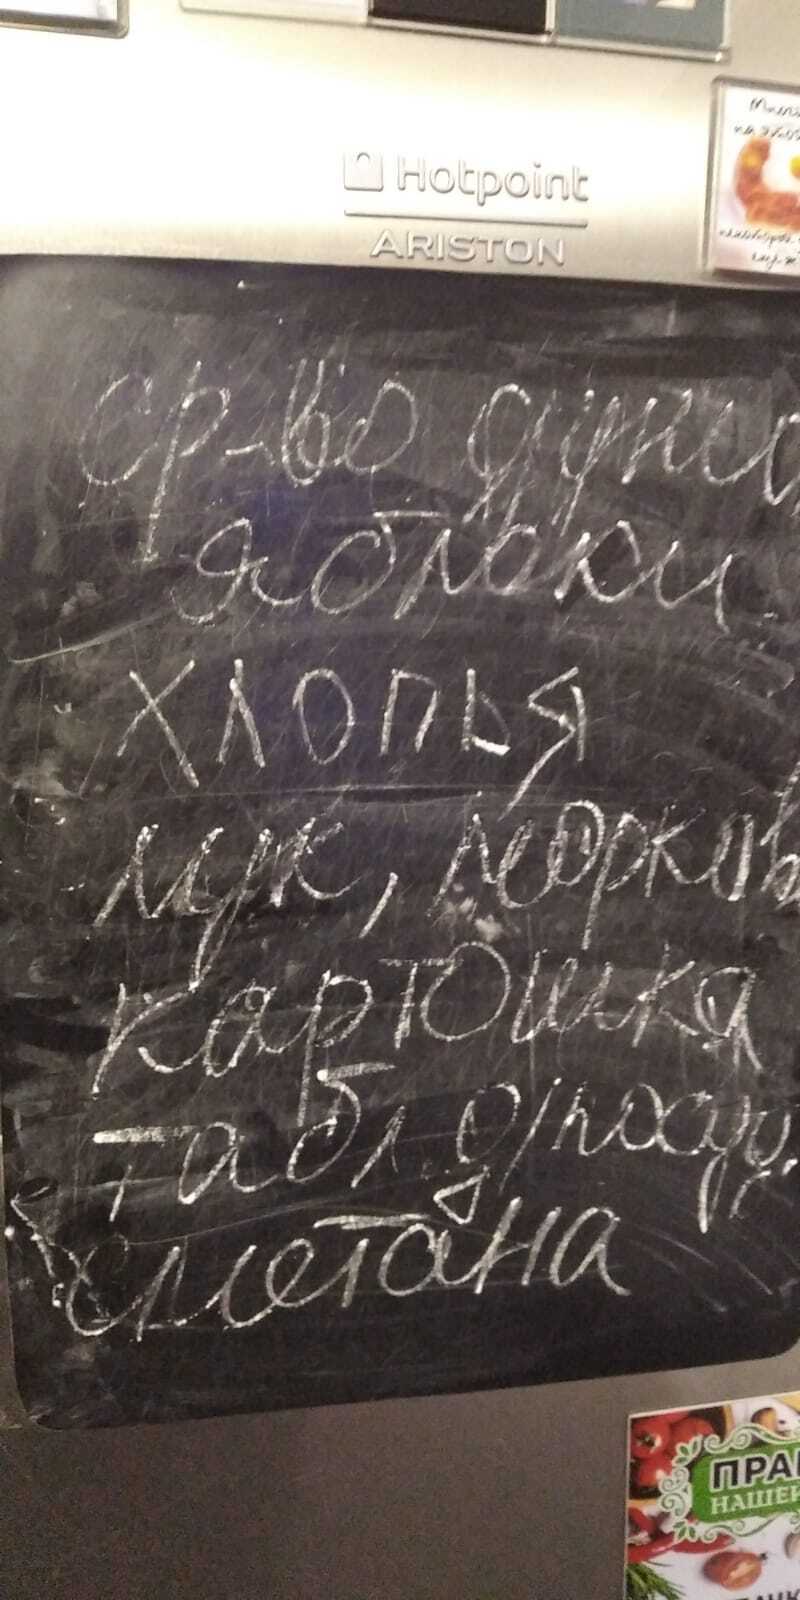 Hotpoint
ARISTON
ср-во
яблоки
хлопья
лук, морковь
картошка
табл. д/посуд.
сметана
ПРА
НАШЕ